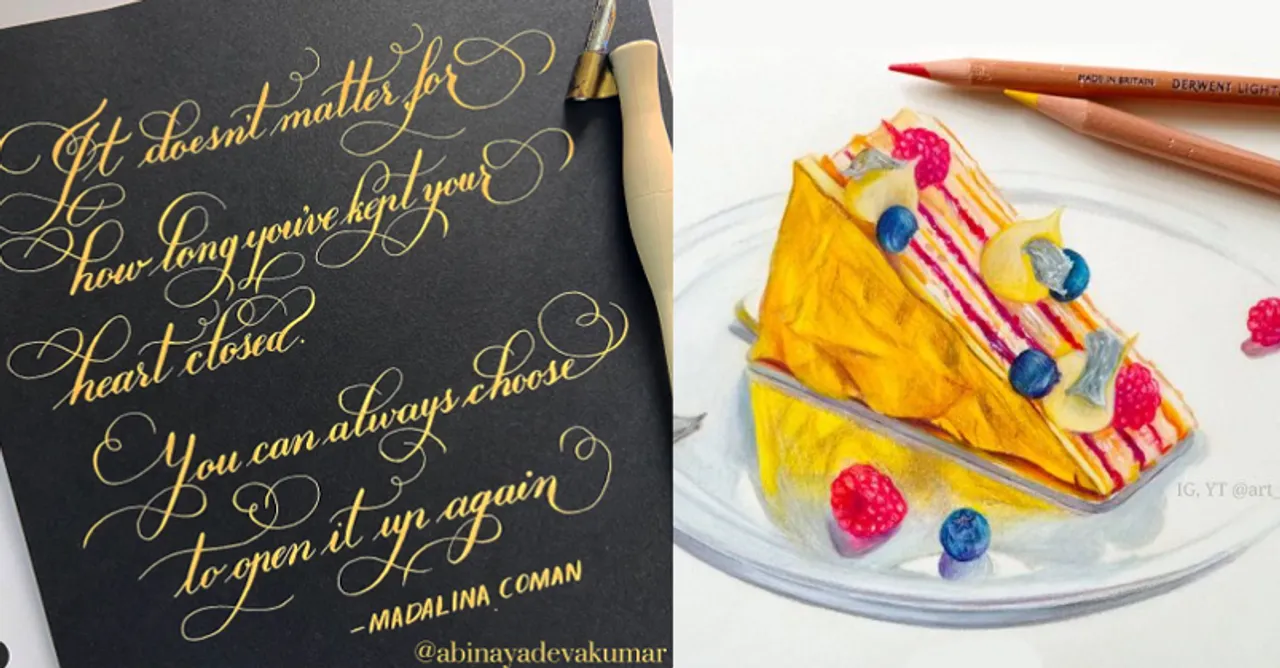 It doesn't matter for
how long you've kept your
heart closed.
You can always choose
to open it up again
-MADALINA COMAN
@abinayadevakumar
MADE IN BRITAIN DERWENT LIGHT
IG, YT @art_